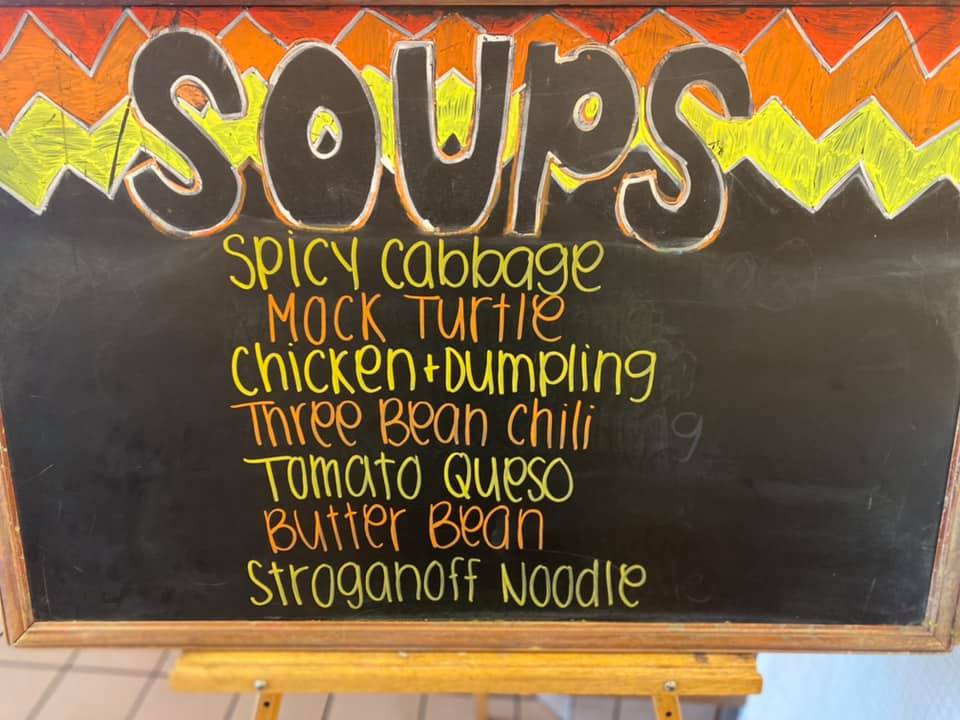 SOUPS
Spicy Cabbage
Mock Turtle
Chicken + Dumpling
Three Bean Chili
Tomato Queso
Butter Bean
Stroganoff Noodle